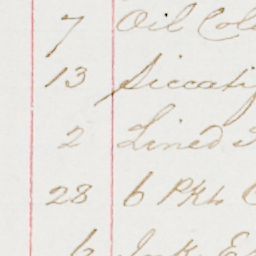 7 Oil Col
13 Siccatif
2 Lined
28 6 Pkts
6 Ink